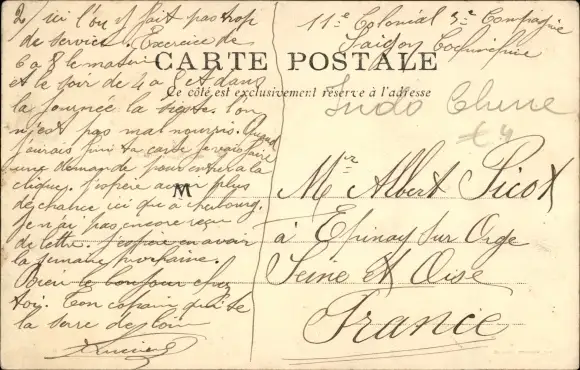 2/ ici l'on ne fait pas trop
de service. Exercice de
6 a 8 le matin
et le soir de 4 a 6 et dans
la journée la sieste. l'on
n'est pas mal nourris. Quand
j'aurais fini ta carte je vais faire
une demande pour entrer a la
clique. J'espère avoir plus
de chance ici que a cherbourg.
Je n'ai pas encore reçu
de lettre. J'espère en avoir
la semaine prochaine.
Bien le bonjour chez
toi. Ton copain qui te
la serre de loin
Lucien
11e Colonial 5e Compagnie
Saigon Cochinchine
CARTE POSTALE
Ce côté est exclusivement réservé à l'adresse
Indo Chine
£4
M
Mr Albert Picot
à Epinay sur Orge
Seine et Oise
France